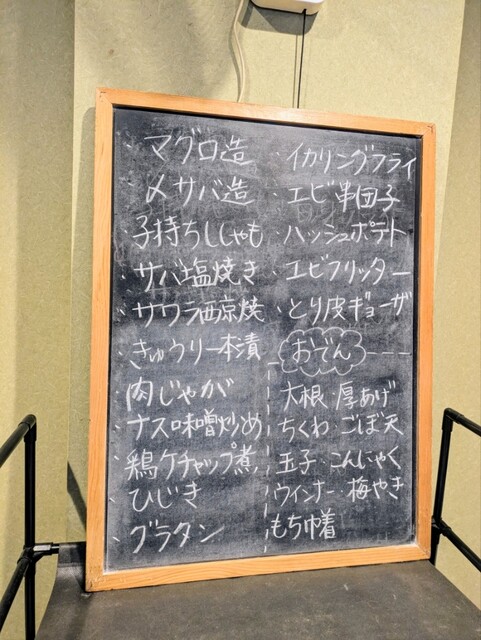 ・マグロ造
・〆サバ造
・子持ちししゃも
・サバ塩焼き
・サワラ西京焼
・きゅうり一本漬
・肉じゃが
・ナス味噌炒め
・鶏ケチャップ煮
・ひじき
・グラタン
・イカリングフライ
・エビ串団子
・ハッシュポテト
・エビフリッター
・とり皮ギョーザ
おでん
大根・厚あげ
ちくわ・ごぼ天
玉子・こんにゃく
ウインナー・梅やき
もち巾着